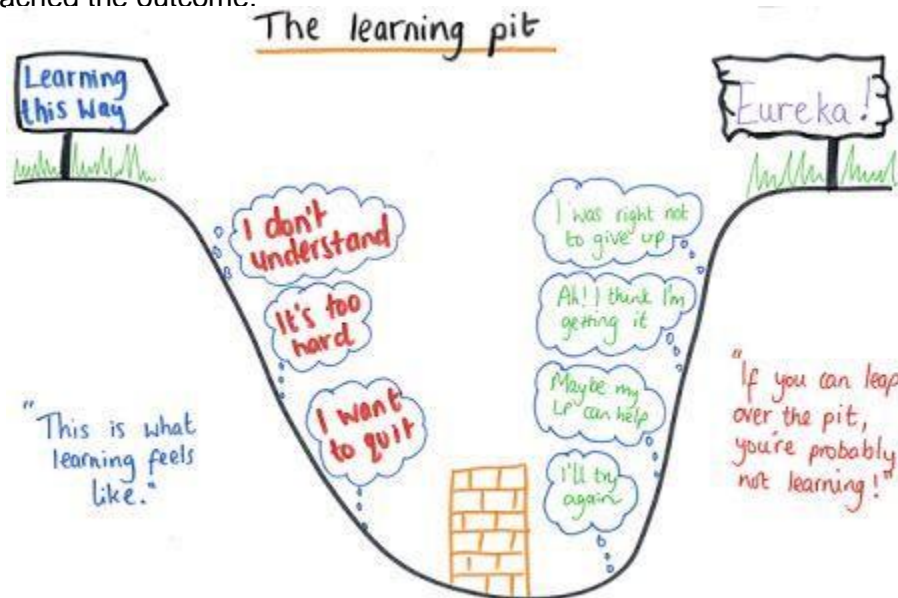 ached the outcome.
The learning pit
Learning
this Way
Eureka!
I don't
understand
It's too
hard
I want
to quit
I was right not
to give up
Ah! I think I'm
getting it
Maybe my
LP can help
I'll try
again
"This is what
learning feels
like."
"If you can leap
over the pit,
you're probably
not learning!"